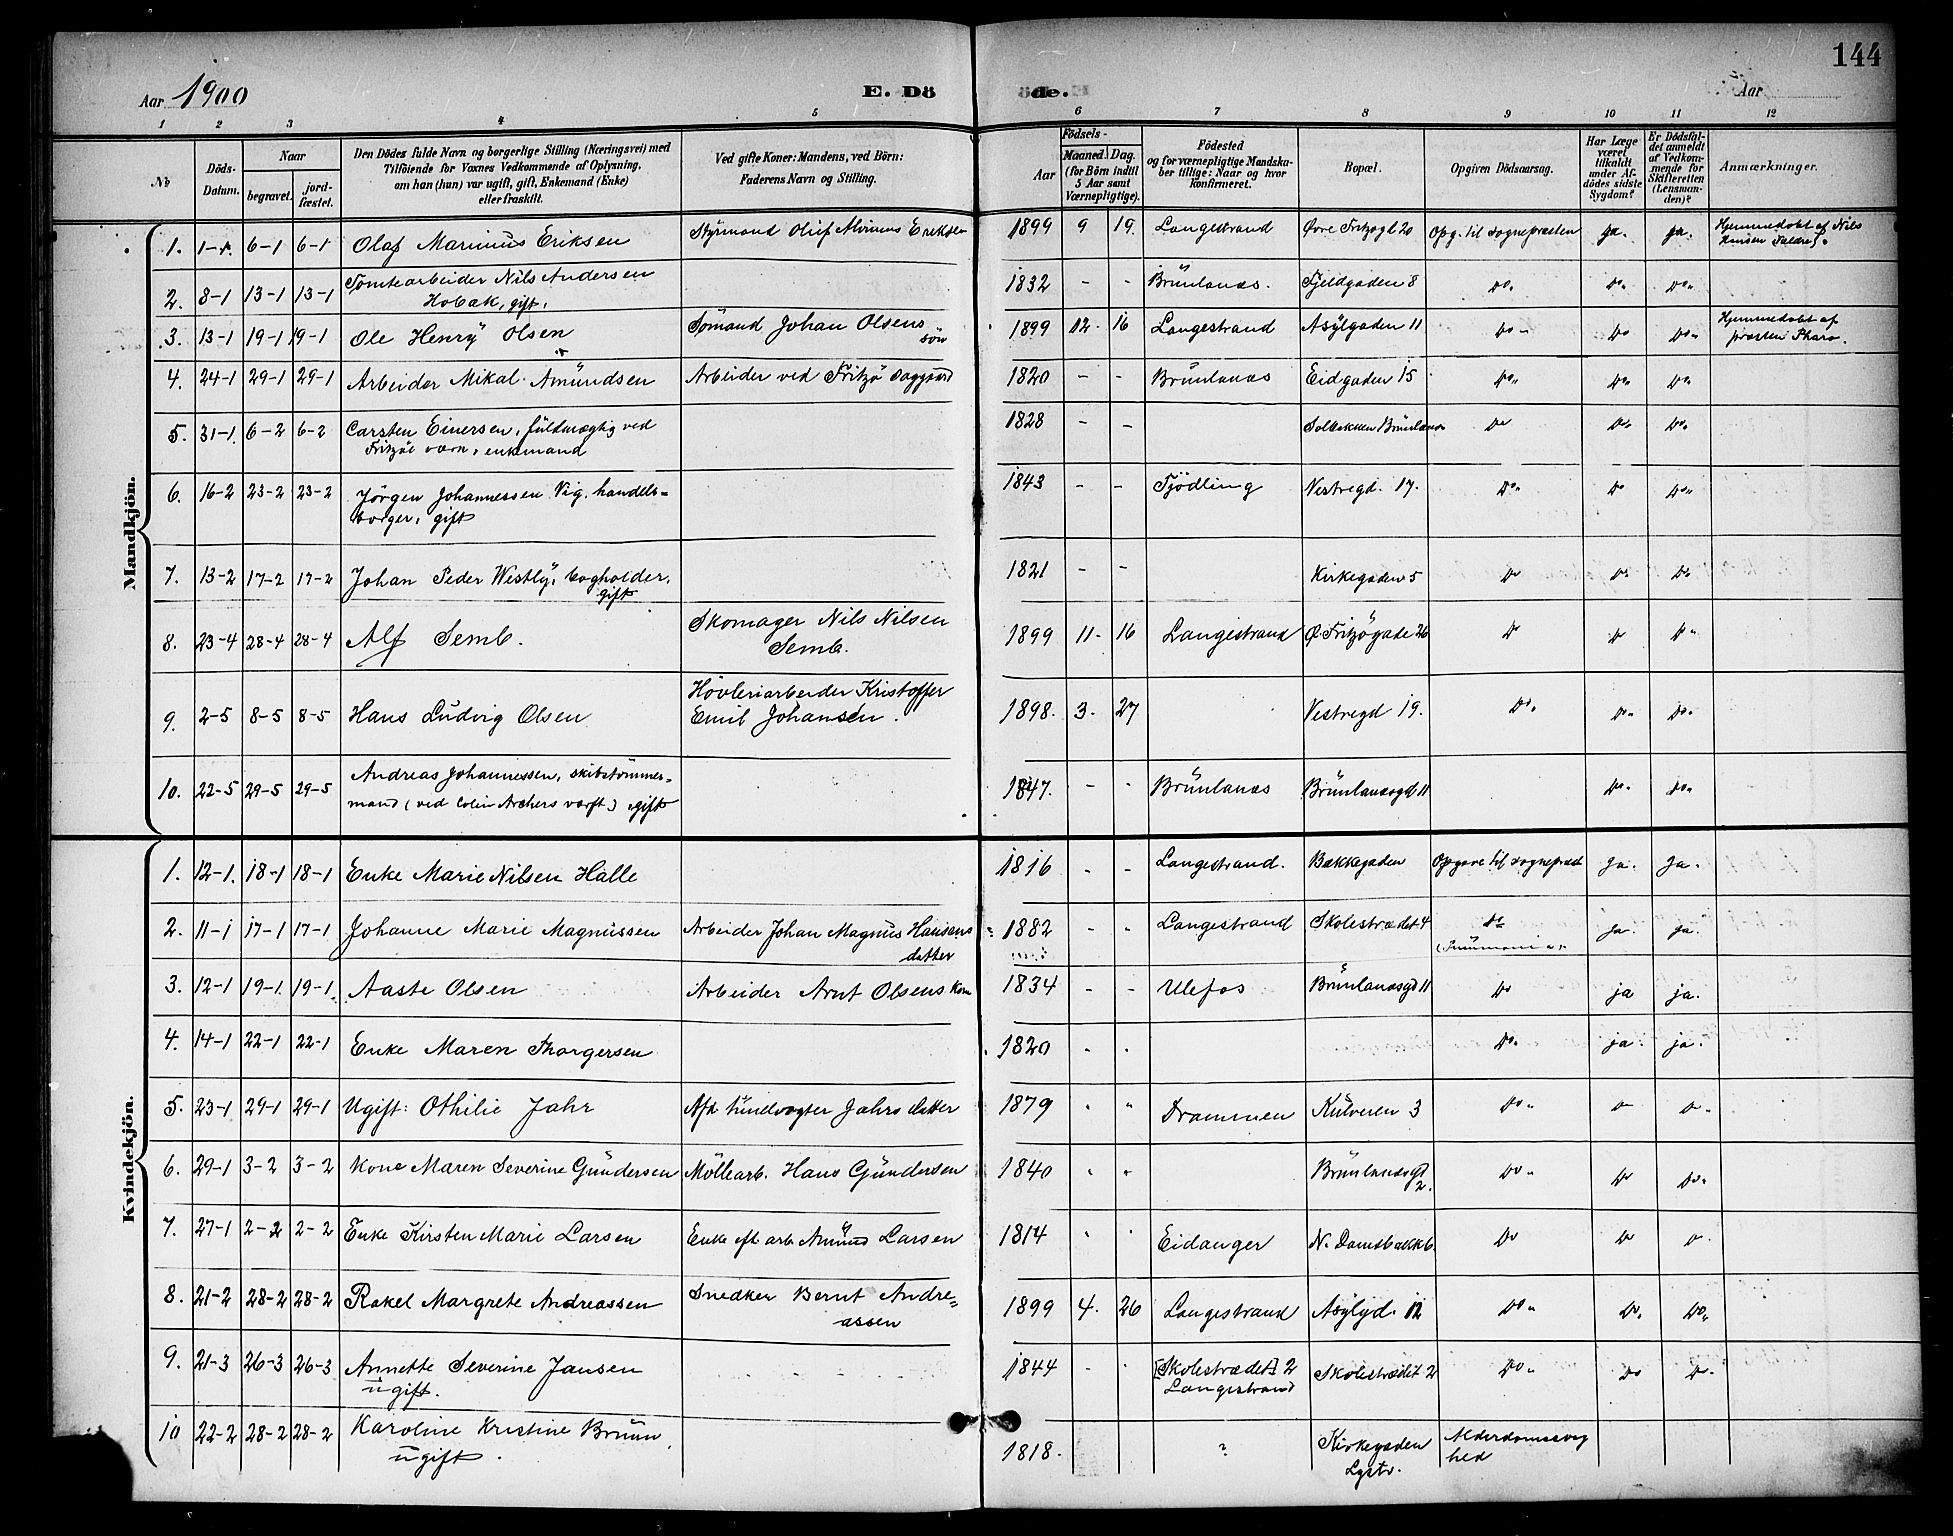 144
Aar 1900
E. Dö
de.
Aar
1 2 3 4 5 6 7 8 9 10 11 12
No
Döds-Datum.
Naar
begravet.
jord-fæstet.
Den Dödes fulde Navn og borgerlige Stilling (Næringsvei) med
Tilföiende for Voxnes Vedkommende af Oplysning,
om han (hun) var ugift, gift, Enkemand (Enke)
eller fraskilt.
Ved gifte Koner: Mandens, ved Börn:
Faderens Navn og Stilling.
Födsels-
Aar
Maaned.
Dag.
(for Börn indtil
5 Aar samt
Værnepligtige).
Födested
og for værnepligtige Mandska-
ber tillige: Naar og hvor
konfirmeret.
Bopæl.
Opgiven Dödsaarsag.
Har Læge
været
tilkaldt
under Af-
dödes sidste
Sygdom?
Er Dödsfal-
det anmeldt
af Vedkom-
mende for
Skifteretten
(Lensman-
den)?
Anmærkninger.
Mandkjön.
1. 1-1. 6-1 6-1 Olaf Marinius Eriksen Styrmand Oluf Eriksen 1899 9 19. Langestrand Øvre Fritzøgt 20 Opg. til sognepresten ja. ja. Hjemmedøbt af Nils
2. 8-1 13-1 13-1 Tomtearbeider Nils Andersen
Hobæk, gift. 1832 - - Brünlanæs. Fjeldgaden 8 Do. Do. Do.
3. 13-1 19-1 19-1 Ole Henry Olsen Sömand Johan Olsens
sön 1899 12. 16 Langestrand Asylgaden 11 Do. Do Do. Hjemmedøbt af
presten
4. 24-1 29-1 29-1 Arbeider Mikal Amündsen Arbeider ved Fritzö 1820 - - Brünlanæs Eidgaden 15 Do. Do. Do.
5. 31-1. 6-2 6-2 Carsten Einersen, füldmægtig ved
Fritzöe værk, enkemand 1828 - - Solbakken Brünlanæs Do Do. Do.
6. 16-2 23-2 23-2 Jörgen Johannessen Vig, handels=
borger, gift 1843 - - Tjödling Vestregd. 17. Do. Do Do.
7. 13-2 17-2 17-2 Johan Peder Westly, bogholder,
gift 1821 - - Kirkegaden 5 Do Do Do
8. 23-4 28-4 28-4 Alf Semb. Skomager Nils Nilsen
Semb. 1899 11- 16 Langestrand Ø. Fritzögade 26 Do Do Do
9. 2-5 8-5 8-5 Hans Ludvig Olsen Hövleriarbeider Kristoffer
Emil Johansen. 1898. 3. 27 Vestregd 19. Do. Do. Do.
10. 22-5 29-5 29-5 Andreas Johannessen, skibstömmer=
mand (ved Colin Archers værft) gift 1847. - - Brünlanæs Brünlanæsgd 11 Do. Do.
Kvindekjön.
1. 12-1. 18-1 18-1 Enke Marie Nilsen Halle 1816 - - Langestrand. Bakkegaden Opgave til sognepræst ja. ja.
2. 11-1 17-1 17-1 Johanne Marie Magnüssen Arbeider Johan Magnüs Hansens
datter 1882 - - Langestrand Skolestrædet 4 Do ja. ja.
3. 12-1 19-1 19-1. Aaste Olsen Arbeider Arnt Olsens kone 1834 - - Ulefos Brünlanæsgd 11 Do ja ja.
4. 14-1 22-1 22-1 Enke Maren Thorgersen 1820 - - Do. ja. ja.
5. 23-1 29-1 29-1 Ugift: Othilie Jahr Afd. Jahrs datter 1879 - - Drammen Külveien 3 Do. Do Do.
6. 29-1 3-2 3-2 Kone Maren Severine Gündersen Möllearb. Hans Gündersen 1840 - - Brünlanæsgd
2. Do. Do Do.
7. 27-1 2-2 2-2 Enke Kirsten Marie Larsen Enke eft arb. Amünd Larsen 1814 - - Eidanger N. Damsbakk 6. Do Do Do.
8. 21-2 28-2 28-2 Rakel Margrete Andreassen Snedker Bernt Andre=
assen 1899 4. 26 Langestrand Asylgd. 12 Do. Do. Do.
9. 21-3 26-3 26-3 Annette Severine Jansen
ugift. 1844 - - [Skolestrædet] 2
Langestrand Skolestrædet 2 Do. Do Do.
10 22-2 28-2 28-2 Karoline Kristine Brüün
ugift. 1818. ? Kirkegaden
Lgstr. Alderdomssvag
hed